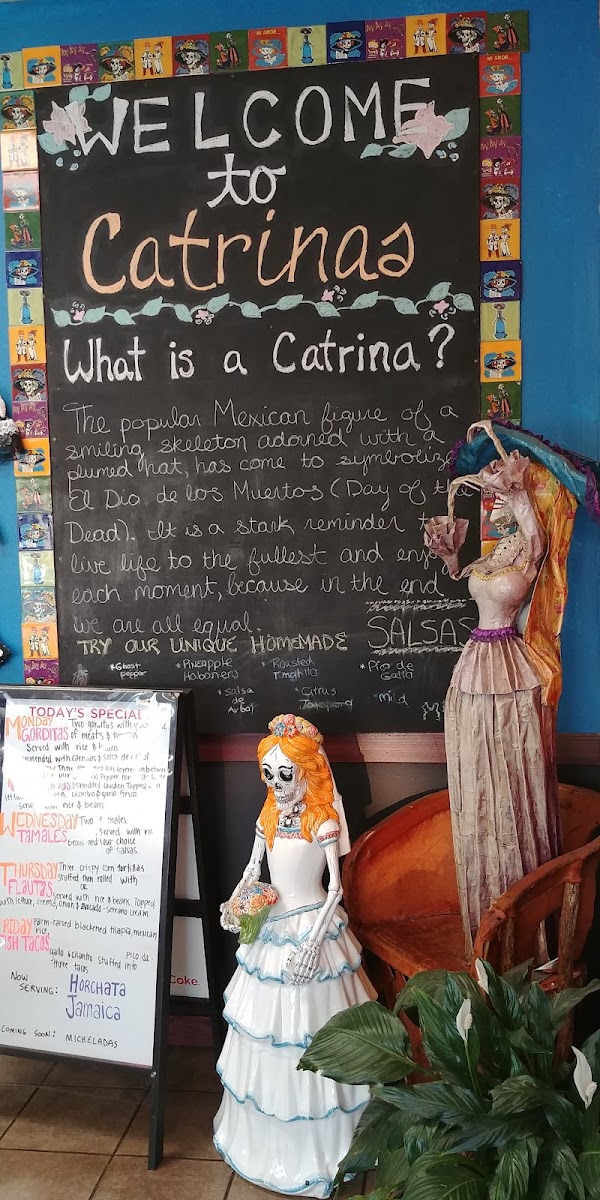 WELCOME
to
Catrinas
What is a Catrina?
The popular Mexican figure of a
smiling skeleton adorned with a
plumed hat, has come to symbolize
El Dia de los Muertos (Day of the
Dead). It is a stark reminder
live life to the fullest and enjoy
each moment, because in the end
we are all equal.
TRY OUR UNIQUE HOMEMADE SALSAS
*Ghost pepper
*Pineapple Habanero
*Roasted Tomatillo
*Pico de Gallo
*Salsa de Arbol
*Citrus
*Mild
TODAY'S SPECIAL
MONDAY Two gorditas with
GORDITAS of meats &
Served with rice &
WEDNESDAY Two
TAMALES Served with rice
beans and your choice
of salsas.
THURSDAY Three crispy corn tortillas
FLAUTAS stuffed then rolled with
OR
Served with rice & beans. Topped
with lettuce, crema, onion & avocado-serrano cream
FRIDAY Farm-raised blackened tilapia, mexican
FISH TACOS rice,
Pico de
gallo & cilantro stuffed into
three tacos
NOW SERVING: Horchata
Jamaica
COMING SOON: MICHELADAS
Coke.
MI AMOR...